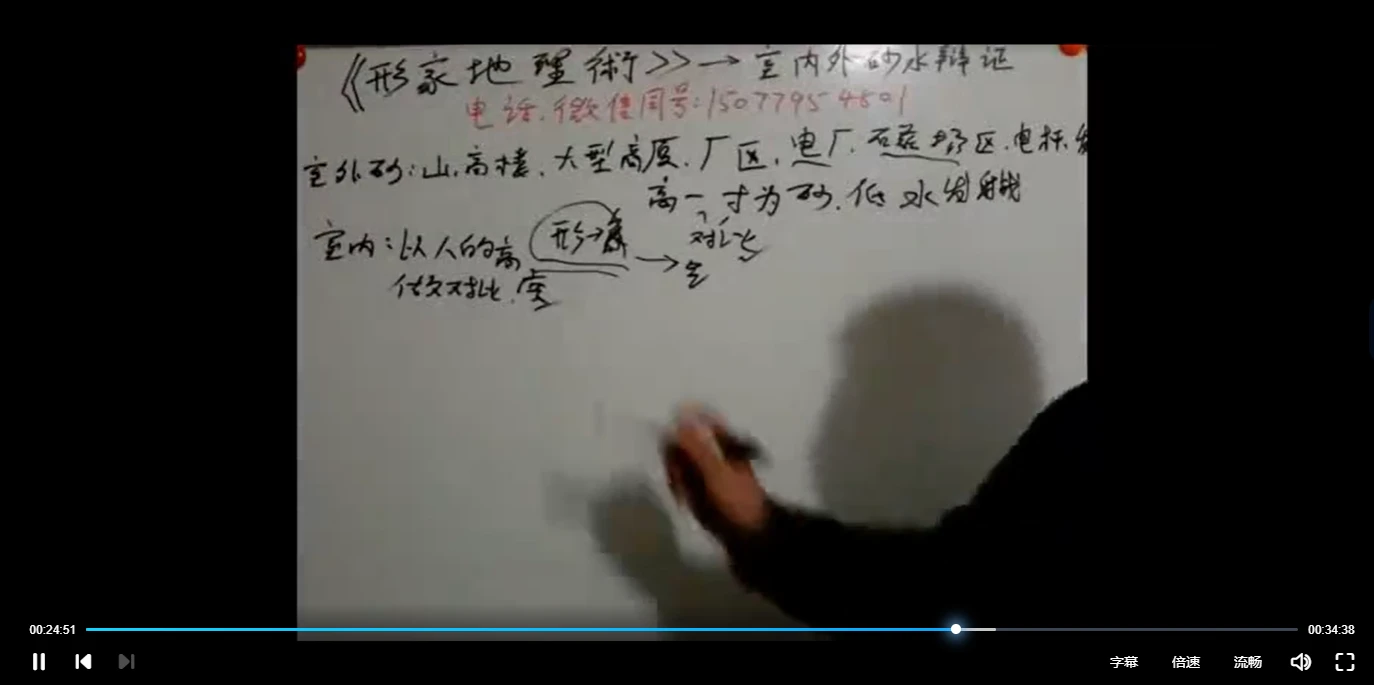 《形家地理術》→室内外砂水辩证
电话.微信同号:15077954801
室外砂:山.高楼.大型高厦.厂区.电厂.石磁场区.电杆.发
高一寸为砂.低水发射线
室内:以人的高 形→煞 → 对比
做对比.实
00:24:51
00:34:38
字幕 倍速 流畅